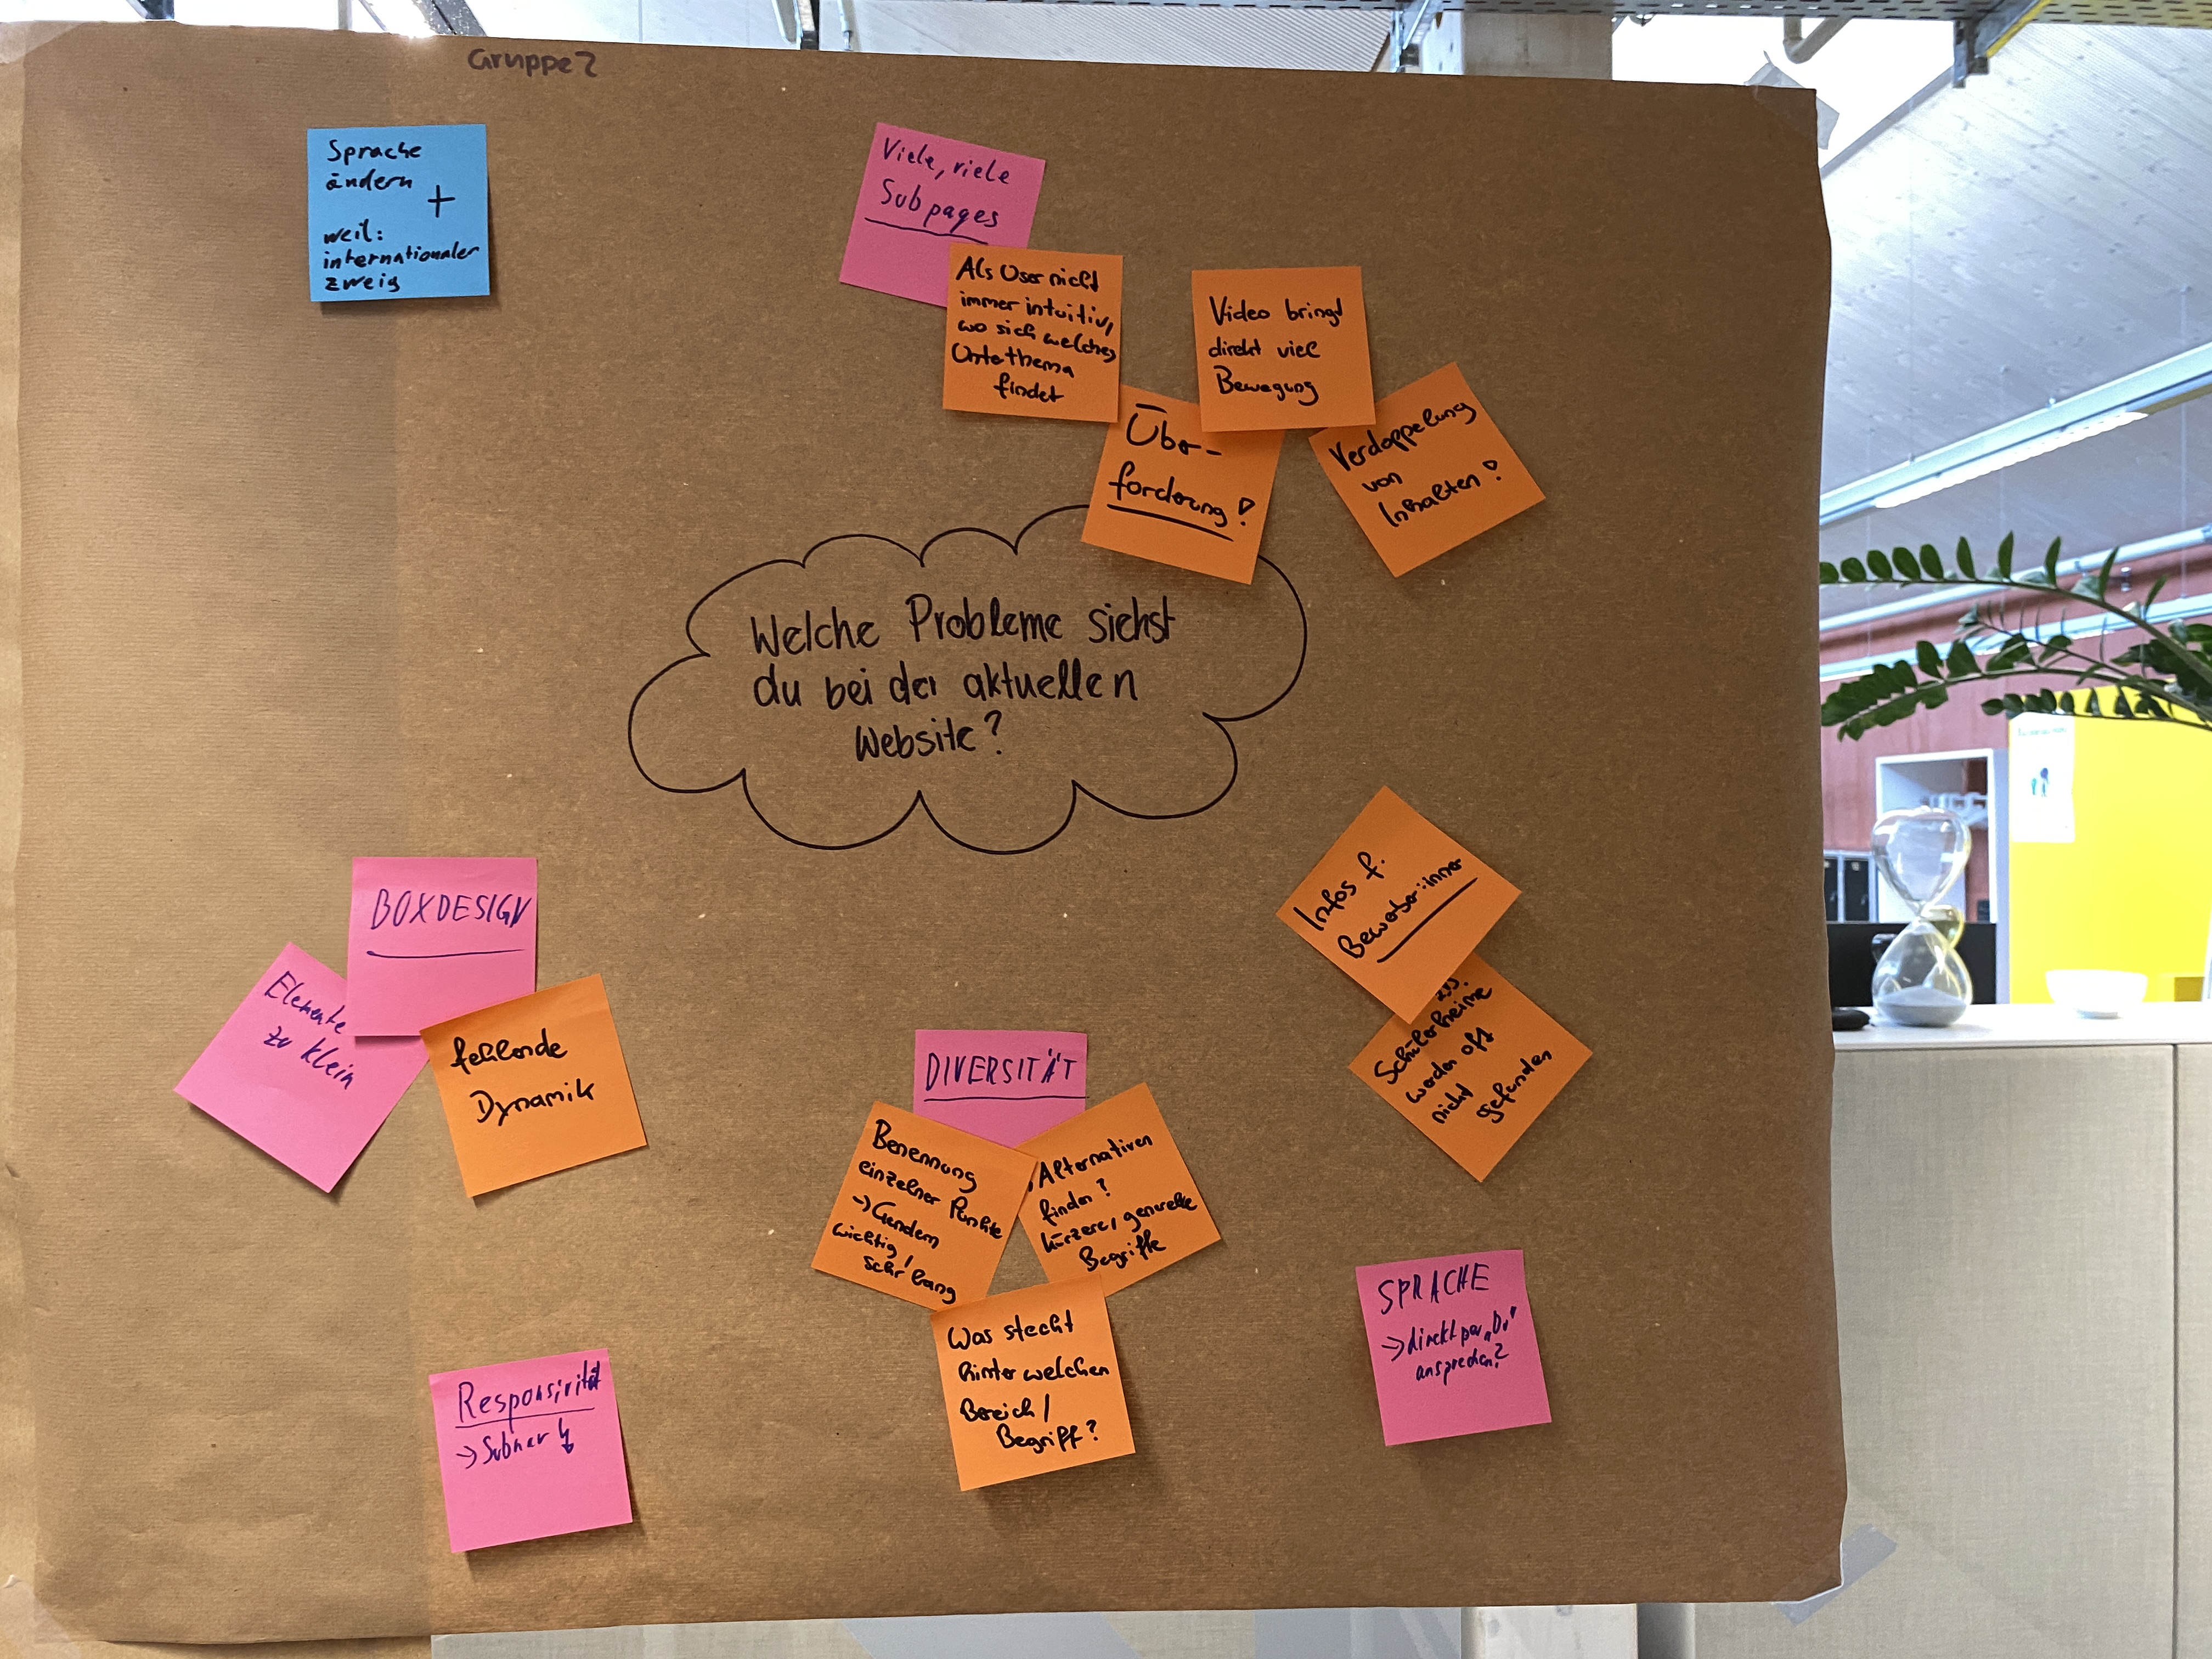 Gruppe 2
Sprache
ändern +
weil:
internationaler
zweig
Viele, viele
Subpages
Als User nicht
immer intuitiv,
wo sich welches
Unterthema
findet
Video bringt
direkt viel
Bewegung
Über-
forderung!
Verdoppelung
von
Inhalten!
Welche Probleme siehst
du bei der aktuellen
Website?
BOXDESIGN
Elemente
zu klein
fehlende
Dynamik
Infos f.
Bewerber:innen
Schülerheime
werden oft
nicht
gefunden
DIVERSITÄT
Benennung
einzelner Punkte
→ Gendern
wichtig /
sehr lang
Alternativen
finden?
kürzere, generelle
Begriffe
Was steckt
hinter welchen
Bereich /
Begriff?
SPRACHE
→ direkt per „Du"
ansprechen?
Responsivität
→ Subnav